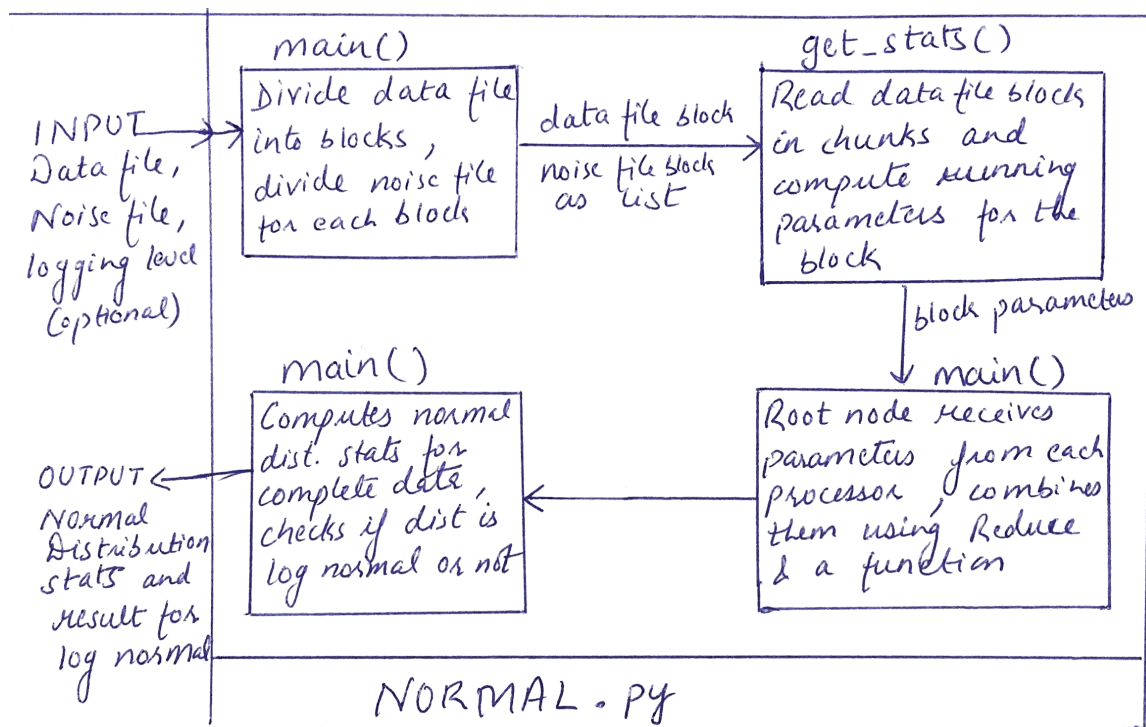 main()
Divide data file
into blocks,
divide noise file
for each block
INPUT
Data file,
Noise file,
logging level
(optional)
data file block
noise file block
as list
get_stats()
Read data file block
in chunks and
compute running
parameters for the
block
block parameters
main()
Root node receives
parameters from each
processor, combines
them using Reduce
& a function
main()
Computes normal
dist. stats for
complete data,
checks if dist is
log normal or not
OUTPUT
Normal
Distribution
stats and
result for
log normal
NORMAL.py